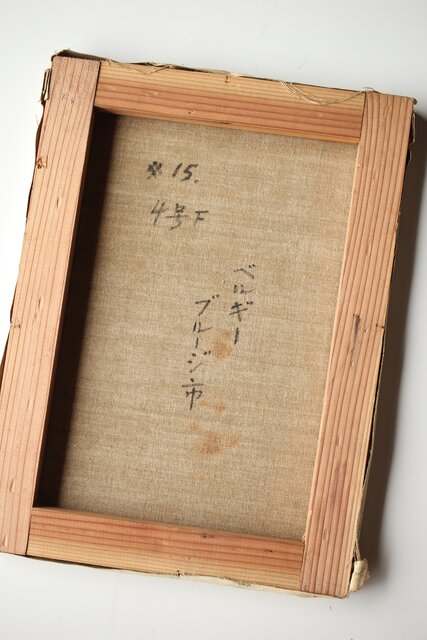 # 15.
4号F
ベルギー
ブルージ市